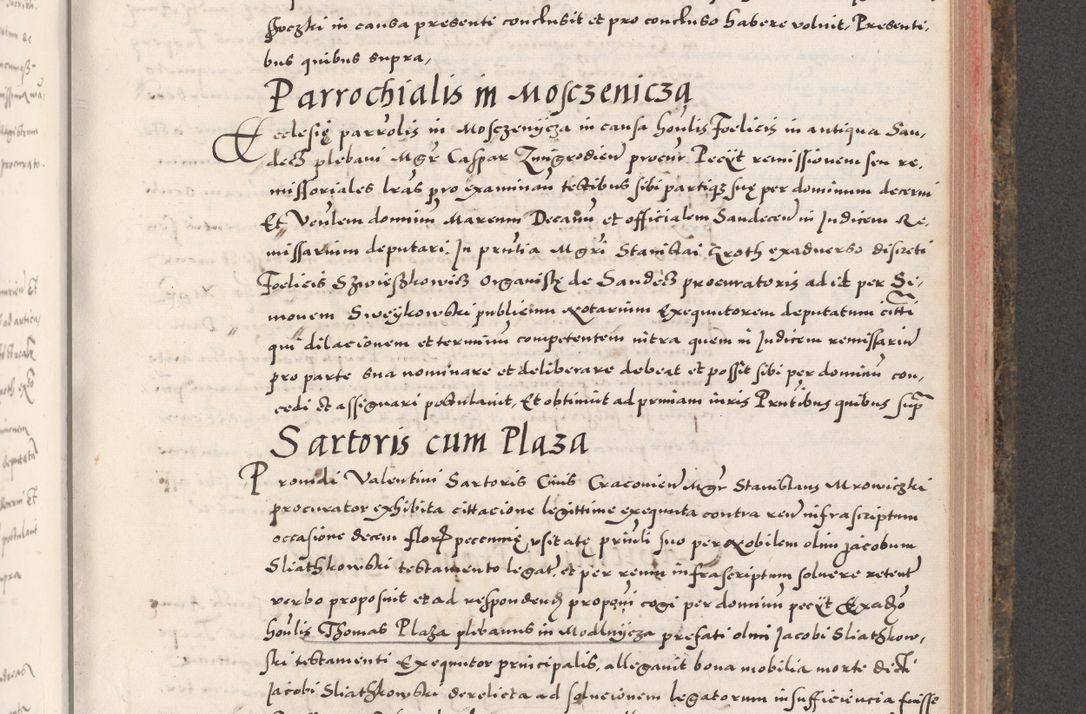 ſoczki in causa presenti conclusit et pro concluso habere voluit, Presenti,
bus quibus supra,
Parrochialis in Mosczenicza
Ecclesię parrolis in Mosczenycza in causa honlis Foelicis in antiqua San,
decz plebani Mgr Caspar Zmigrodien procur. Pecyt remissionem seu re,
missoriales lras pro examinan testibus sibi partiqz suę per dominum decerni
Et Venlem dominum Marcum Decanu et officialem Sandecen in Judicem Re,
missarium deputari. In prutia Mgri Stanislai Groth exadverso discreti
Foelicis Szwieszkowicz organistę de Sandecz procuratoris ad id per Si,
monem Sweykowski publicum Notarium Exequutorem deputatum citti
qui dilacionem et terminu competentem intra quem in Judicem remissarium
pro parte sua nominare et deliberare debeat et possit sibi per dominu con,
cedi et assignari postulavit, Et obtinuit ad primam iuris Prntibus quibus sup
Sartoris cum Plaza
Providi Valentini Sartoris Civis Cracovien Mgr Stanislaus Mrowiczki
procurator exhibita cittacione legittime exequuta contra reu infrascriptum
occasione decem flor pecunię usitatę priuli suo per Nobilem olim Jacobum
Sliathkowski testamento legat, et per reum infrascriptum solvere retent
verbo proposuit et ad respondend propoui cogi per dominu pecyt Exadzo
honlis Thomas Plaza plebanus in Modlnycza prefati olim Jacobi Sliathkow,
ski testamenti Exequutor principalis, allegavit bona mobilia morte dicti
Jacobi Sliathkowski derelicta ad solucionem legatorum insufficiencia fuisse